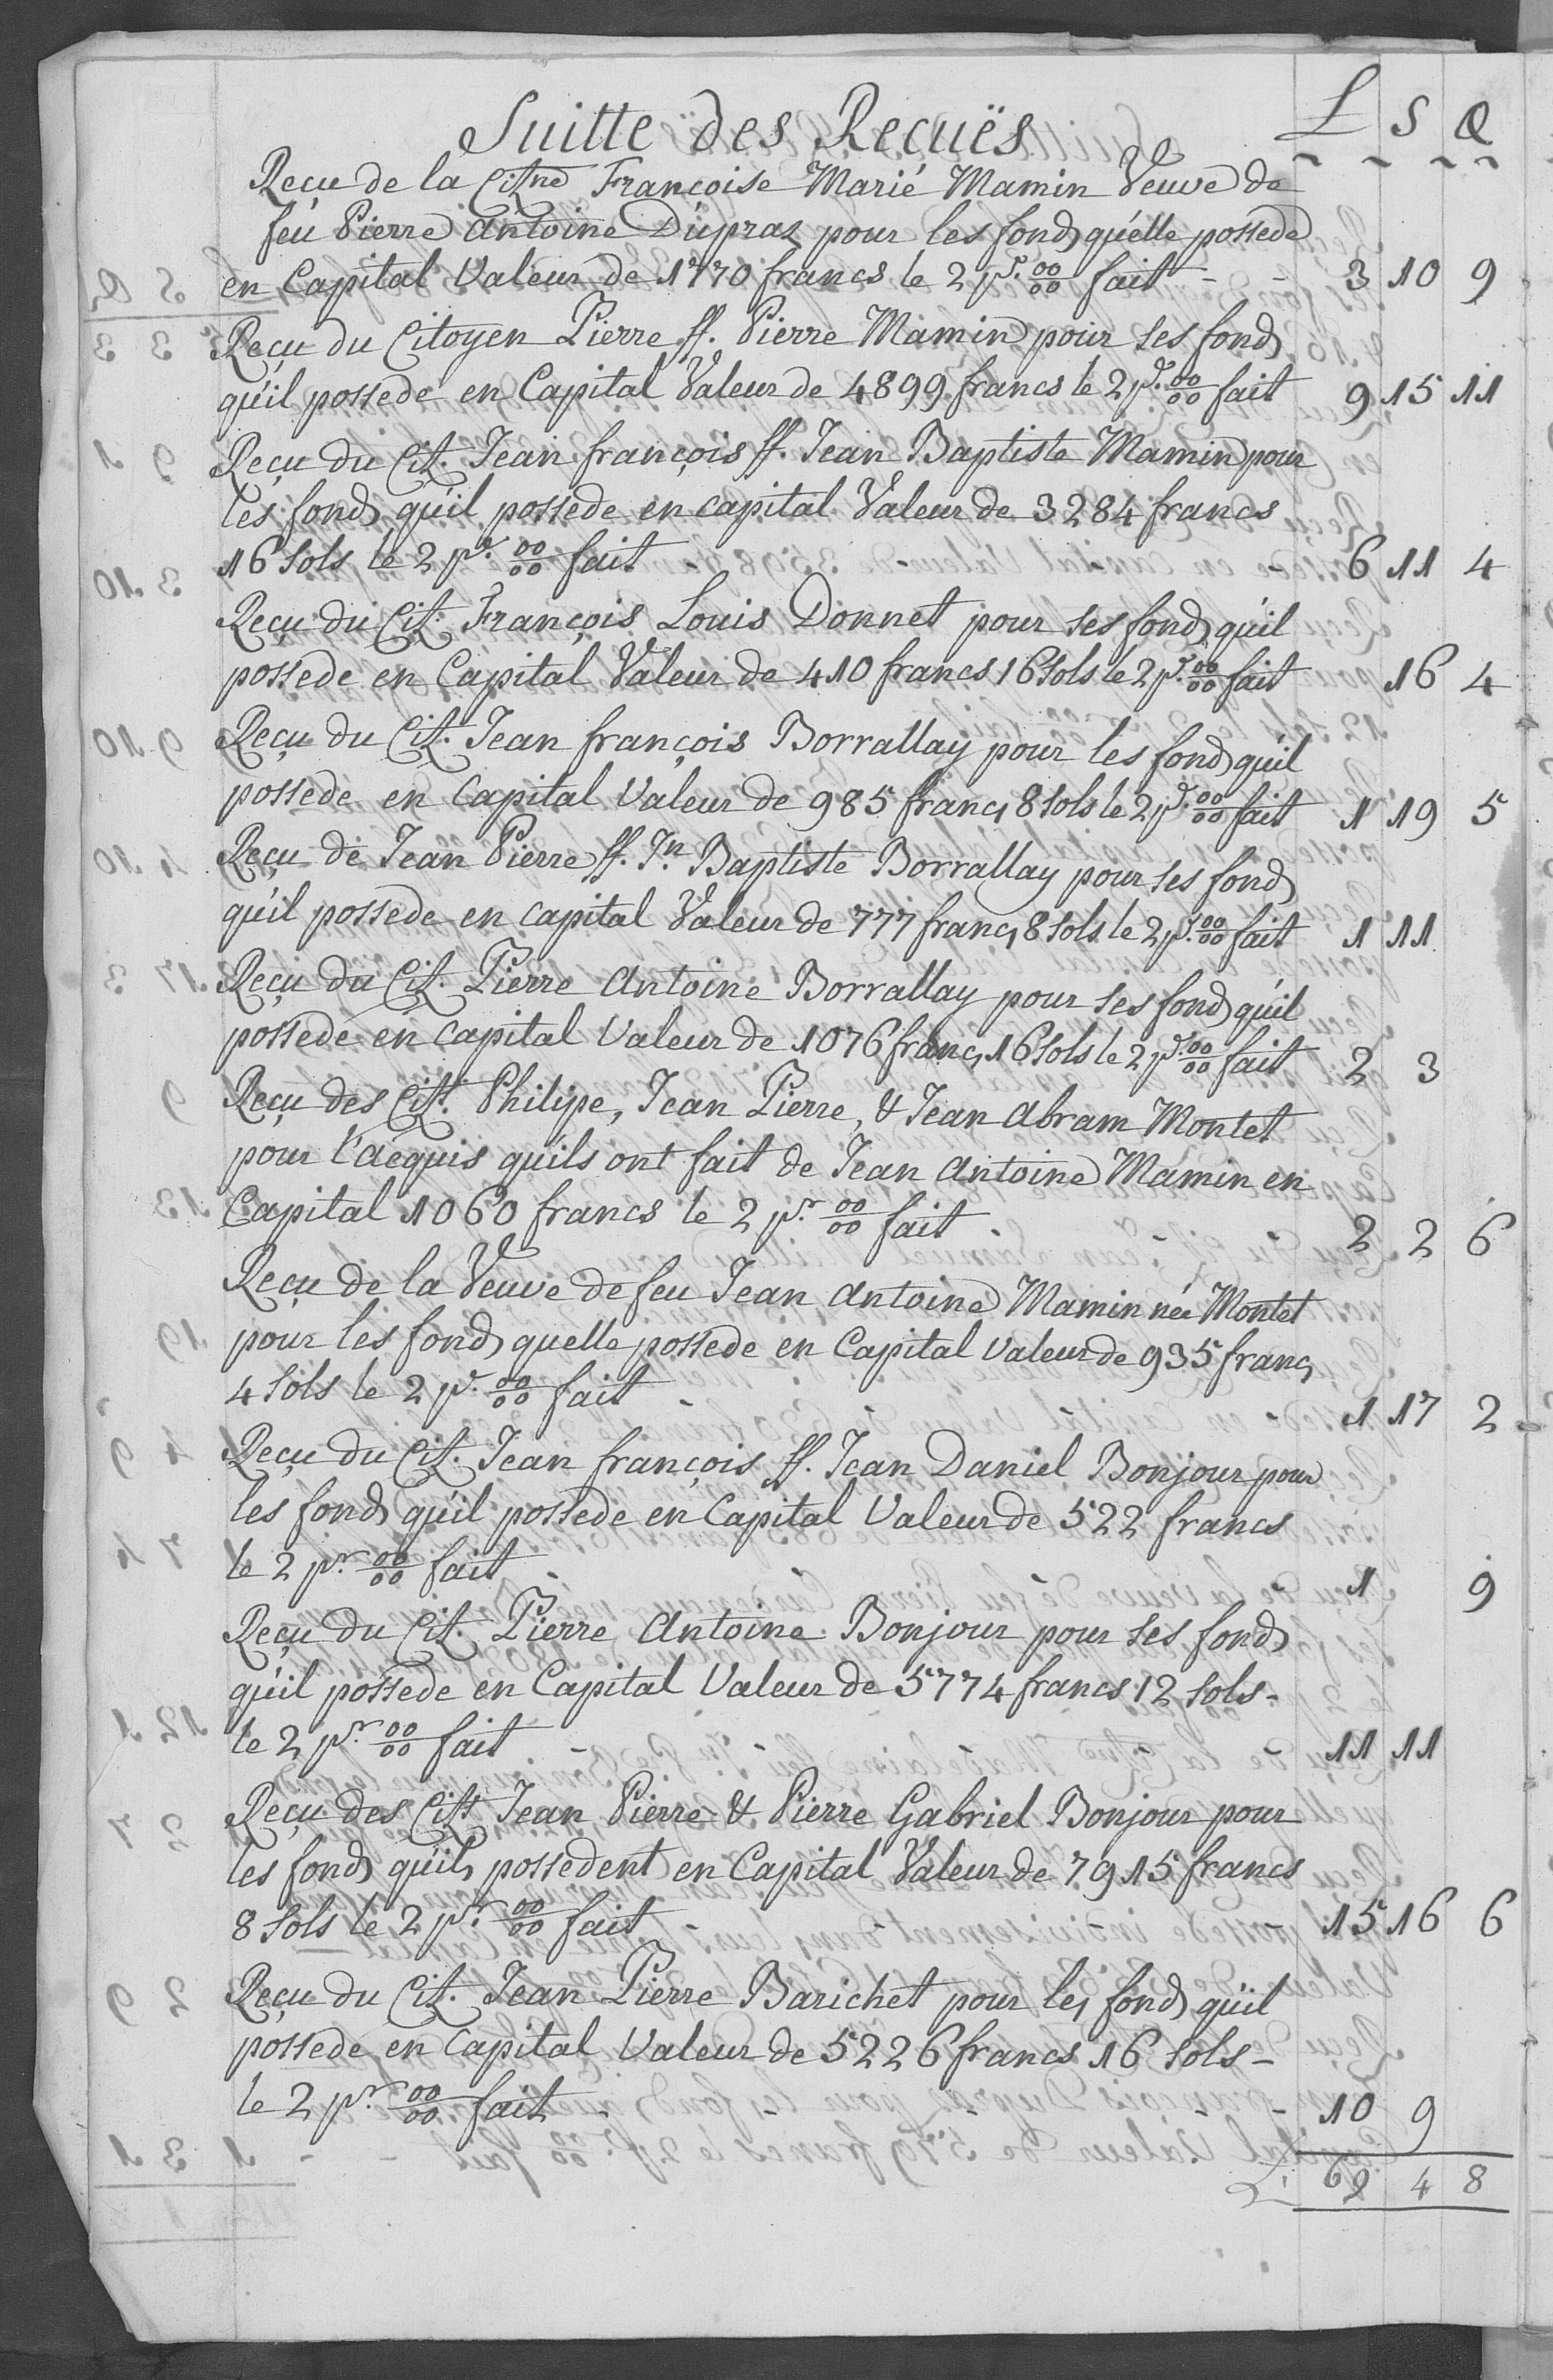 Suitte des Recuës
L S Q
Reçu de la Citne Françoise Marie Mamin Veuve de
feu Pierre Antoine Dupraz pour les fonds qu'elle possede
en Capital Valeur de 1770 francs le 2 pr. 00/00 fait - - 3 10 9
Reçu du Citoyen Pierre ff. Pierre Mamin pour ses fonds
qu'il possede en Capital Valeur de 4899 francs le 2 pr. 00/00 fait 9 15 11
Reçu du Cit. Jean françois ff. Jean Baptiste Mamin pour
les fonds qu'il possede en capital Valeur de 3284 francs
16 sols le 2 pr. 00/00 fait 6 11 4
Reçu du Cit. François Louis Donnet pour ses fonds qu'il
possede en Capital Valeur de 410 francs 16 sols le 2 pr. 00/00 fait 16 4
Reçu du Cit. Jean françois Borrallay pour les fonds qu'il
possede en Capital Valeur de 985 francs 8 sols le 2 pr. 00/00 fait 1 19 5
Reçu de Jean Pierre ff. Jn. Baptiste Borrallay pour ses fonds
qu'il possede en capital Valeur de 777 francs 8 sols le 2 pr. 00/00 fait 1 11
Reçu du Cit. Pierre Antoine Borrallay pour ses fonds qu'il
possede en capital Valeur de 1076 francs 16 sols le 2 pr. 00/00 fait 2 3
Reçu des Cit. Philipe, Jean Pierre, & Jean Abram Montet
pour l'acquis qu'ils ont fait de Jean Antoine Mamin en
Capital 1060 francs le 2 pr. 00/00 fait 2 2 6
Reçu de la Veuve de feu Jean Antoine Mamin née Montet
pour les fonds quelle possede en Capital Valeur de 935 francs
4 sols le 2 pr. 00/00 fait - - 1 17 2
Reçu du Cit. Jean françois ff. Jean Daniel Bonjour pour
les fonds qu'il possede en Capital Valeur de 522 francs
le 2 pr. 00/00 fait 1 9
Reçu du Cit. Pierre Antoine Bonjour pour ses fonds
qu'il possede en Capital Valeur de 5774 francs 12 sols -
le 2 pr. 00/00 fait 11 11
Reçu des Citt Jean Pierre & Pierre Gabriel Bonjour pour
les fonds qu'ils possedent en Capital Valeur de 7915 francs
8 sols le 2 pr. 00/00 fait - - 15 16 6
Reçu du Cit. Jean Pierre Barichet pour les fonds qu'il
possede en Capital Valeur de 5226 francs 16 sols -
le 2 pr. 00/00 fait - - - 10 9
L. 69 4 8